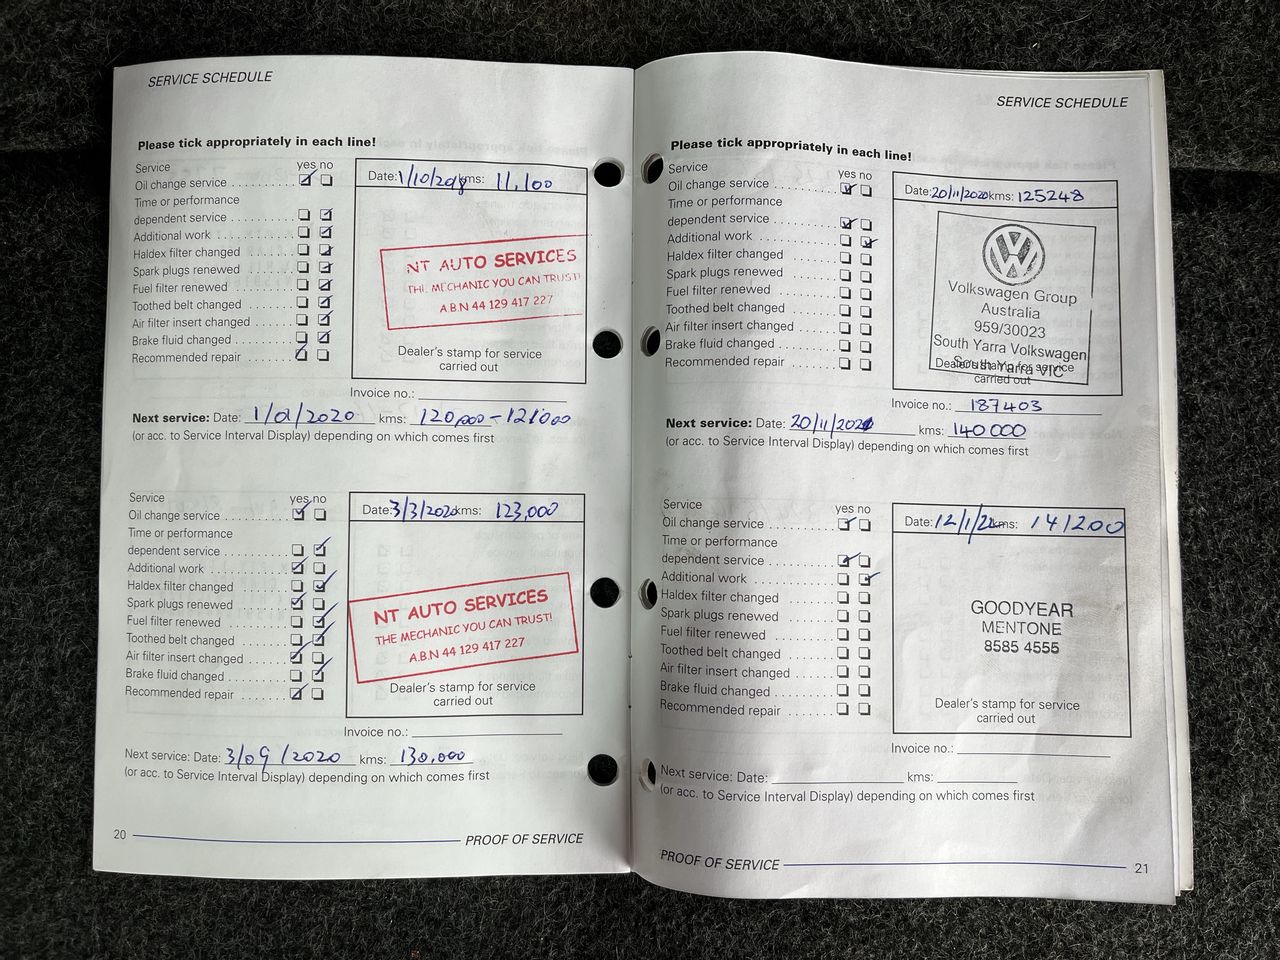 SERVICE SCHEDULE
Please tick appropriately in each line!
Service yes no
Oil change service
Time or performance
dependent service
Additional work
Haldex filter changed
Spark plugs renewed
Fuel filter renewed
Toothed belt changed
Air filter insert changed
Brake fluid changed
Recommended repair
Date: 1/10/2018 kms: 11,100
NT AUTO SERVICES
THE MECHANIC YOU CAN TRUST!
A.B.N 44 129 417 227
Dealer's stamp for service
carried out
Invoice no.:
Next service: Date: 1/01/2020 kms: 120,000 - 121000
(or acc. to Service Interval Display) depending on which comes first
Service yes no
Oil change service
Time or performance
dependent service
Additional work
Haldex filter changed
Spark plugs renewed
Fuel filter renewed
Toothed belt changed
Air filter insert changed
Brake fluid changed
Recommended repair
Date: 3/3/2020 kms: 123,000
NT AUTO SERVICES
THE MECHANIC YOU CAN TRUST!
A.B.N 44 129 417 227
Dealer's stamp for service
carried out
Invoice no.:
Next service: Date: 3/09/2020 kms: 130,000
(or acc. to Service Interval Display) depending on which comes first
20 PROOF OF SERVICE
SERVICE SCHEDULE
Please tick appropriately in each line!
Service yes no
Oil change service
Time or performance
dependent service
Additional work
Haldex filter changed
Spark plugs renewed
Fuel filter renewed
Toothed belt changed
Air filter insert changed
Brake fluid changed
Recommended repair
Date: 20/11/2020 kms: 125248
Volkswagen Group
Australia
959/30023
South Yarra Volkswagen
South Yarra VIC
Dealer's stamp for service
carried out
Invoice no.: 187403
Next service: Date: 20/11/2021 kms: 140000
(or acc. to Service Interval Display) depending on which comes first
Service yes no
Oil change service
Time or performance
dependent service
Additional work
Haldex filter changed
Spark plugs renewed
Fuel filter renewed
Toothed belt changed
Air filter insert changed
Brake fluid changed
Recommended repair
Date: 12/1/22 kms: 141200
GOODYEAR
MENTONE
8585 4555
Dealer's stamp for service
carried out
Invoice no.:
Next service: Date: kms:
(or acc. to Service Interval Display) depending on which comes first
PROOF OF SERVICE 21